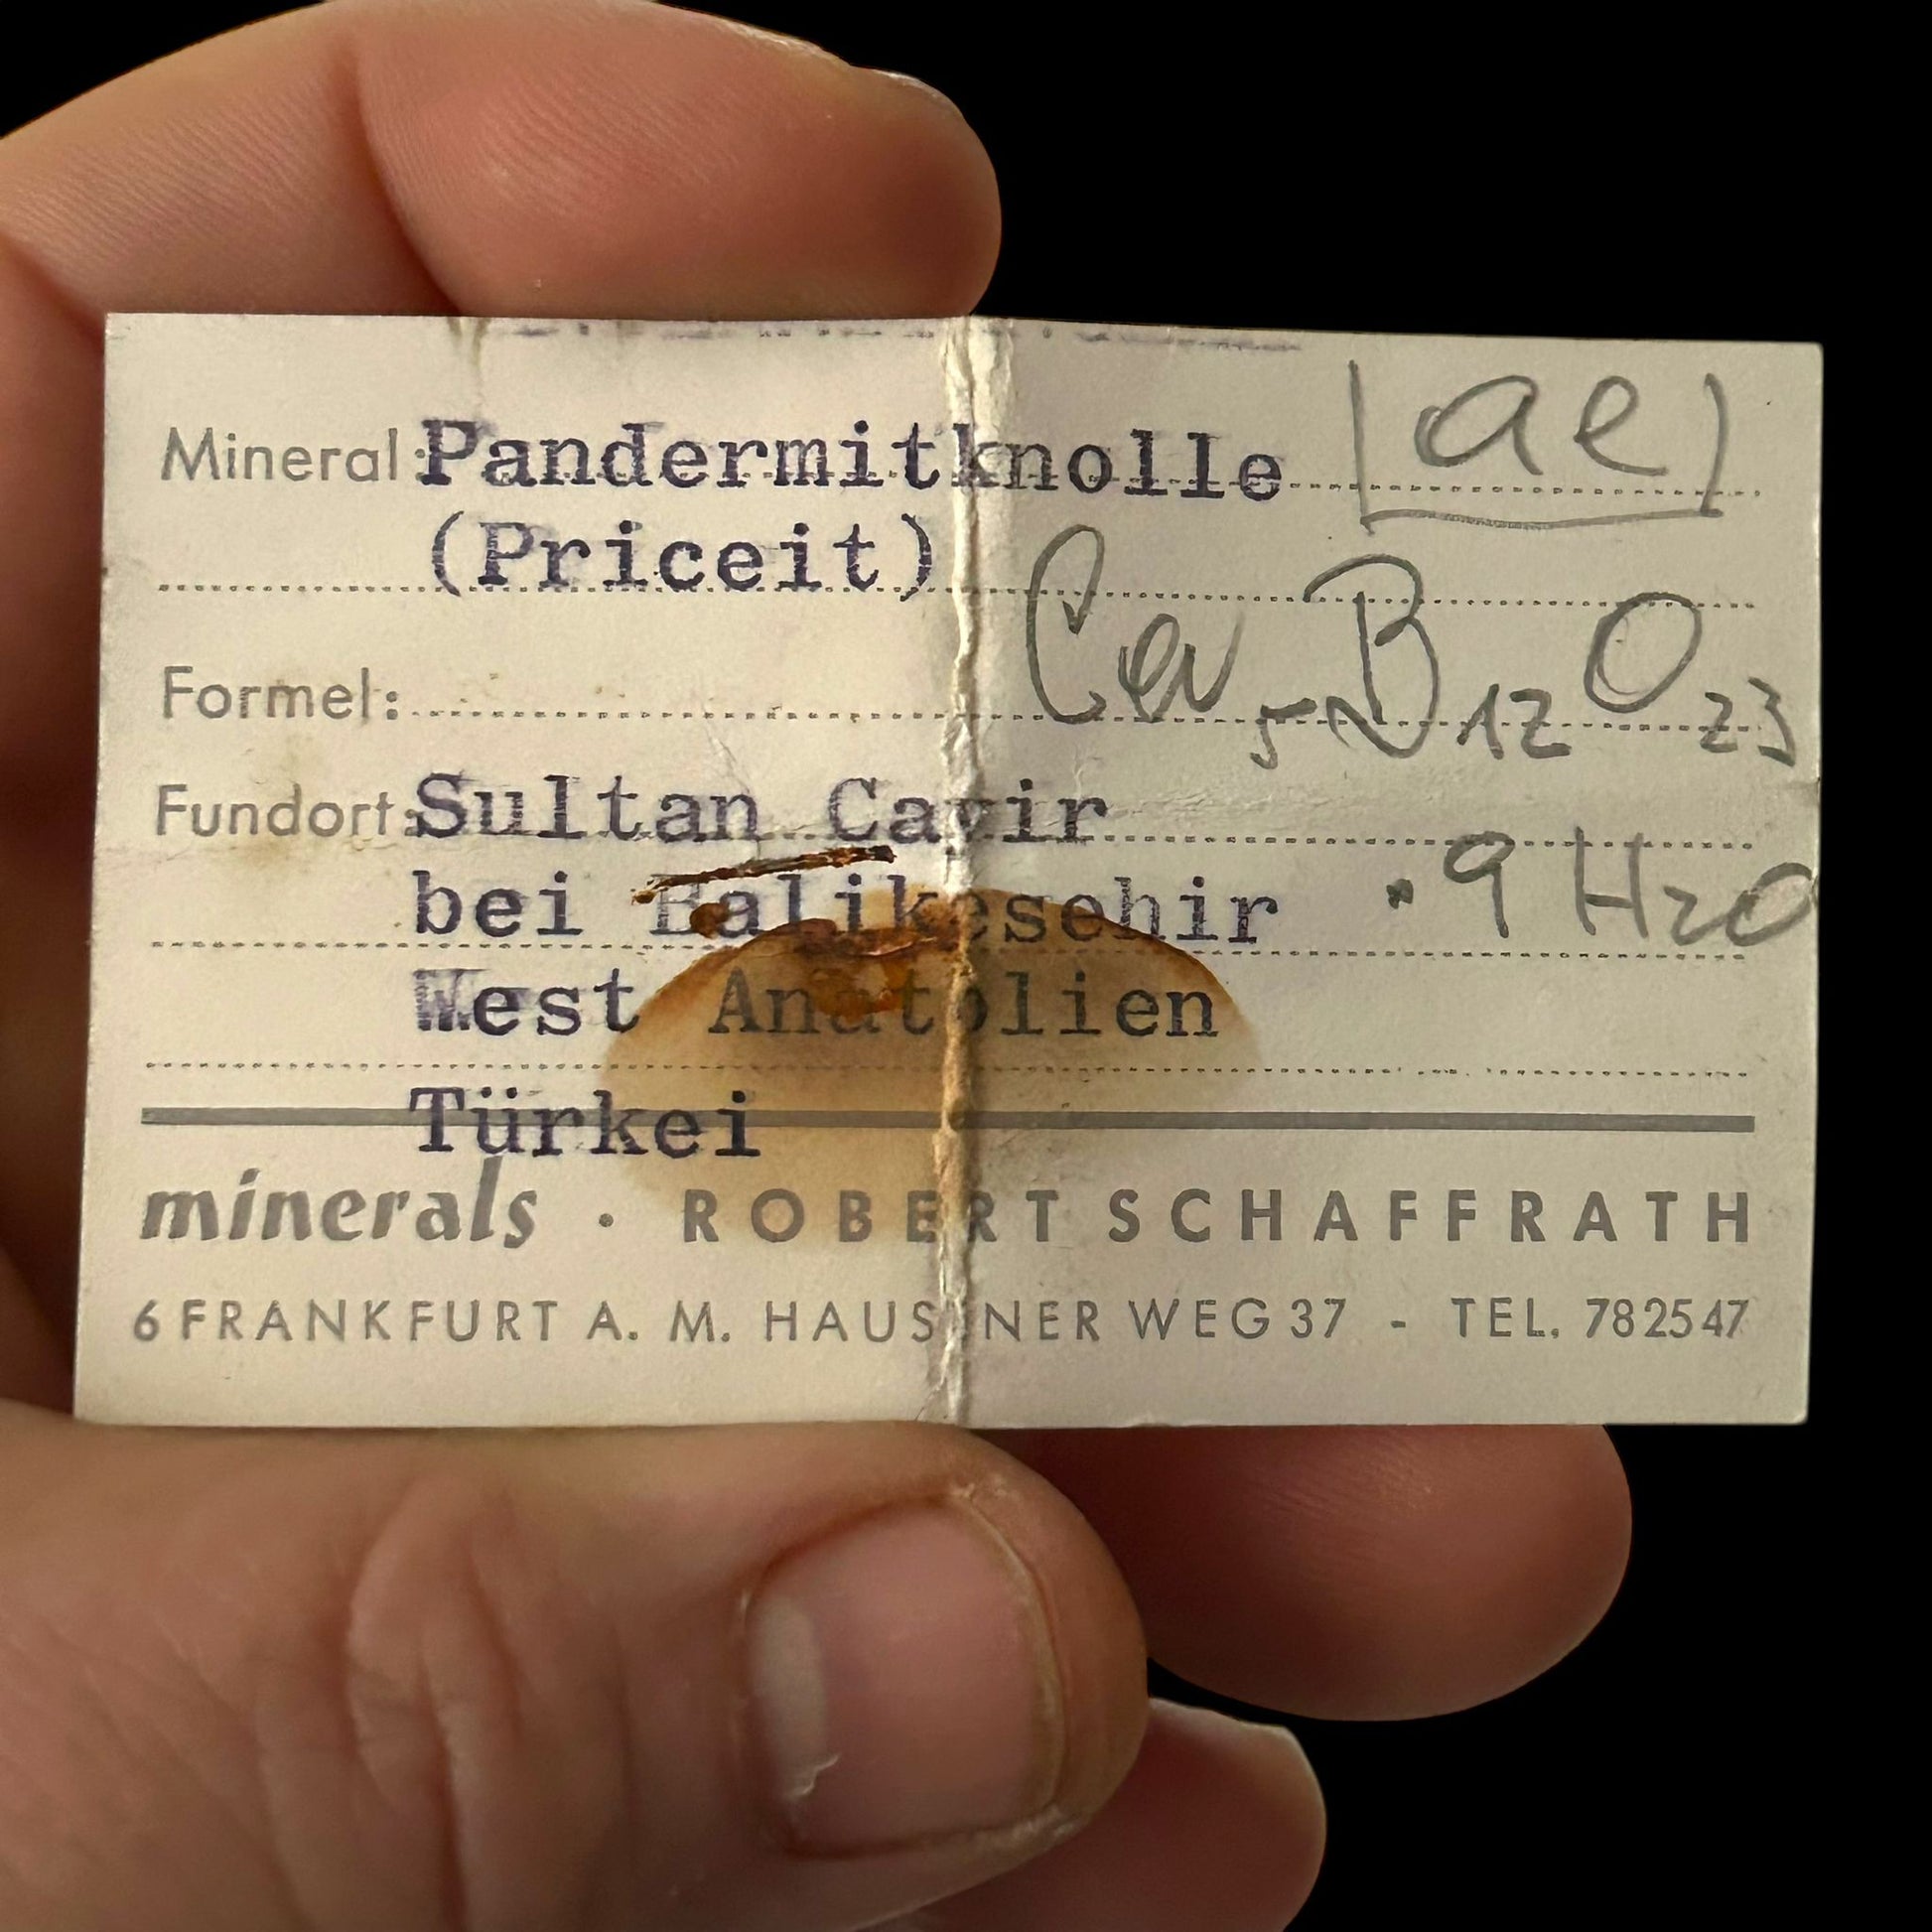 Mineral: Pandermitknolle |ae|
(Priceit)
Formel: Ca5B12O23
Fundort: Sultan Cayir
bei Balikesehir · 9 H2O
West Anatolien
Türkei
minerals · ROBERT SCHAFFRATH
6 FRANKFURT A. M. HAUSENER WEG 37 - TEL. 782547